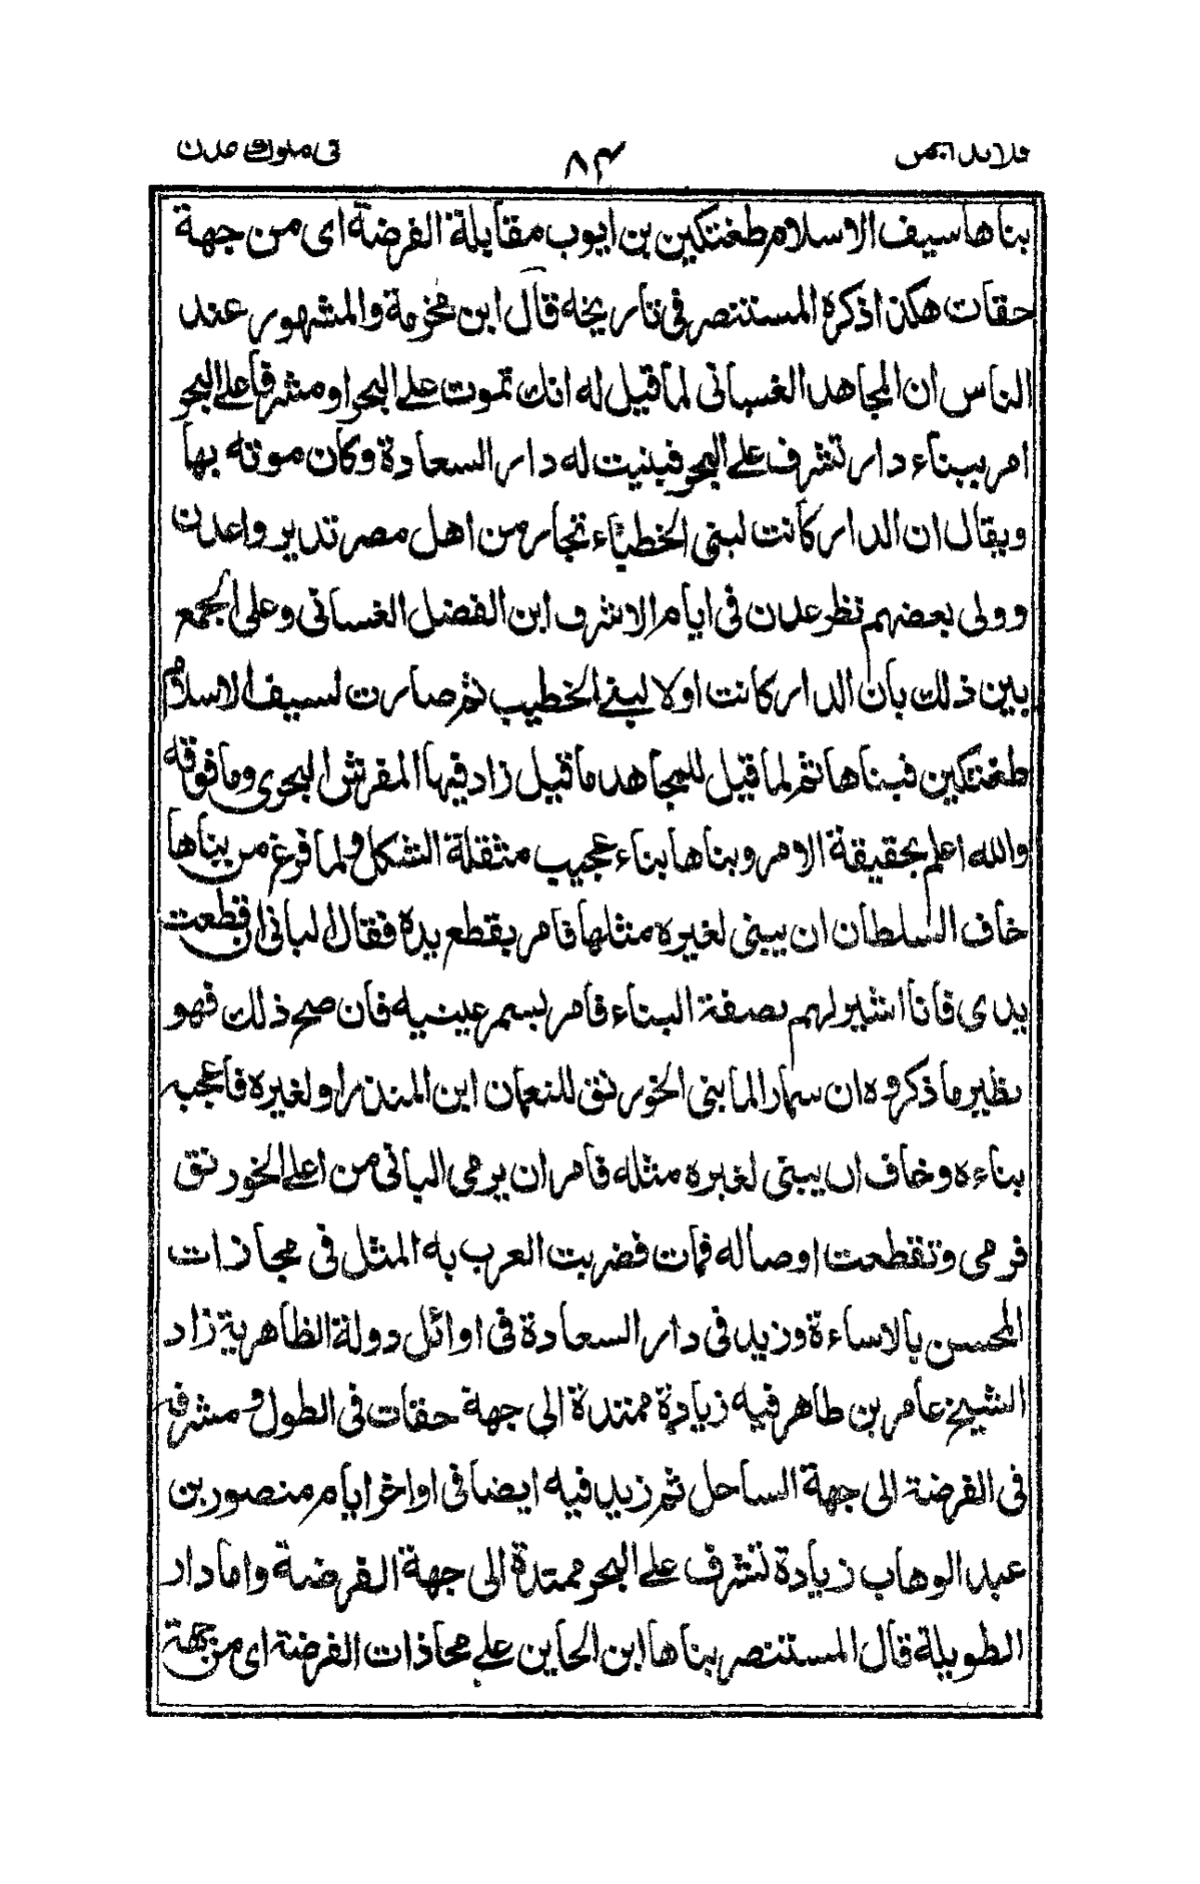 قلايد الجمن ٨٣ في ملوك عدن
بناها سيف الاسلام طغتكين بن ايوب مقابلة الفرضة اى من جهة
حقات هكذا ذكره المستنصر في تاريخه قال ابن مخرمة والمشهور عند
الناس ان المجاهد الغساني لما قيل له انك تموت على البحر او مشرفا على البحر
امر ببناء دار تشرف على البحر فبنيت له دار السعادة وكان موته بها
ويقال ان الدار كانت لبنى الخطباء تجار من اهل مصر تديروا عدن
وولى بعضهم نظر عدن في ايام الاشرف ابن الفضل الغساني وعلى الجمع
بين ذلك بان الدار كانت اولا لبنى الخطيب ثم صارت لسيف الاسلام
طغتكين فبناها ثم لما قيل للمجاهد ما قيل زاد فيها المفرش البحرى وما فوقه
والله اعلم بحقيقة الامر وبناها بناء عجيب مثقلة الشكل ولما فرغ من بناها
خاف السلطان ان يبنى لغيره مثلها فامر بقطع يده فقال البانى ان قطعت
يدى فانا اشير لهم بصفة البناء فامر بسمر عينيه فان صح ذلك فهو
نظير ما ذكروه ان سمار لما بنى الخورنق للنعمان ابن المنذر او لغيره فاعجبه
بناءه وخاف ان يبتى لغيره مثله فامر ان يرمى البانى من اعلى الخورنق
فرمى وتقطعت اوصاله فمات فضربت العرب به المثل في مجازات
المحسن بالاساءة وزيد في دار السعادة في اوائل دولة الظاهرية زاد
الشيخ عامر بن طاهر فيه زيادة ممتدة الى جهة حقات في الطول ومشرف
في الفرضة الى جهة الساحل ثم زيد فيه ايضا في اواخر ايام منصور بن
عبد الوهاب زيادة تشرف على البحر ممتدة الى جهة الفرضة واما دار
الطويلة قال المستنصر بناها ابن الحاين على محاذات الفرضة اى من جهة